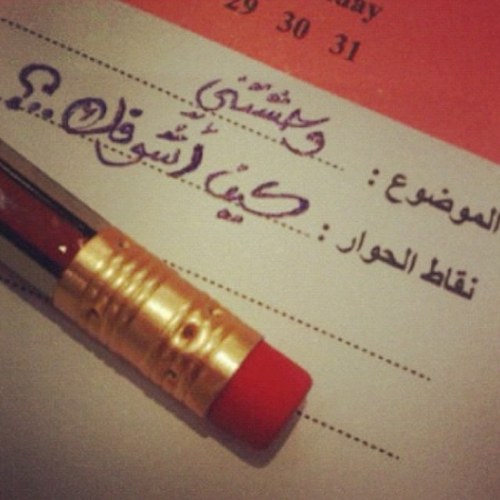 day
29 30 31
الموضوع : وحشتني
نقاط الحوار : كيف أشوفك ..؟